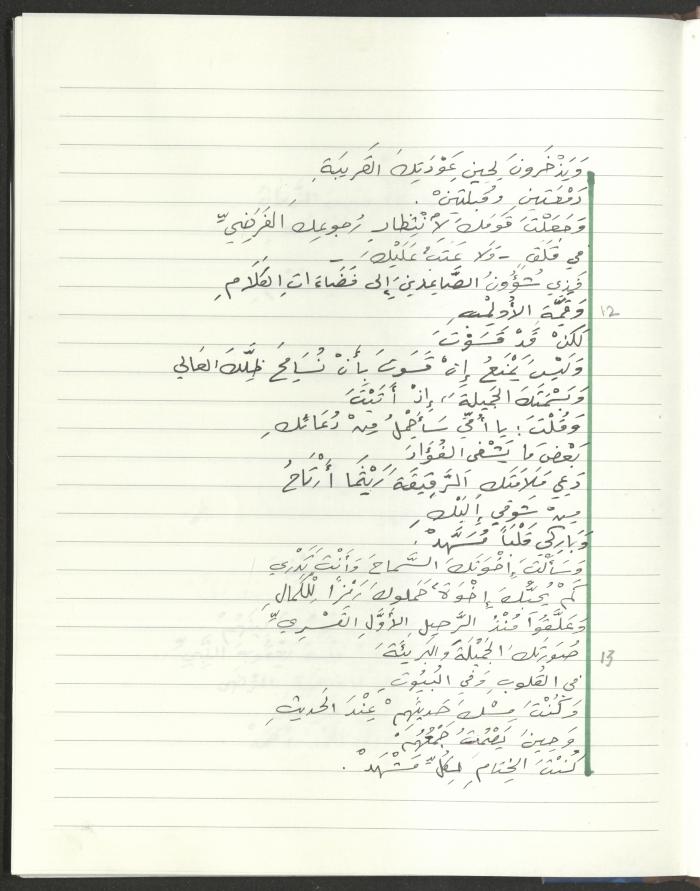 وَيَذْخَرونَ لِحينِ عَوْدَتِكَ القَريبَةِ
دَمْعَتينِ وقُبلَتينْ .
وَجَعَلْتَ قَوْمَكَ لاْنْتِظارِ رُجوعِكَ الفَرَضِيِّ
في قَلَقٍ - وَلا عَتَبٌ عَلَيْكَ -
فَزِي شُؤُونُ الصَّاعِدينَ إلى فَضَاءَاتِ الكَلَامِ
12 وَقِمَّةَ الأُولِمْبِ
لَكنْ قَدْ قَسَوْتَ
وَلَيْسَ يَمْنَعُ إِنْ قَسَوتَ بِأَنْ نُسَامِحَ ظِلَّكَ العَالي
وَبَسْمَتَكَ الجَميلةَ، إِذْ أَتَيْتَ
وَقُلْتَ : يا أمّي سَأَحْمِلُ مِنْ دُعَائكِ
بَعْضَ مَا يَشْفي الفُؤَادَ
دَعِي مَلَامَتَكِ الرَّقيقَةَ رَيْثَمَا أَرْتَاحُ
مِنْ شَوقي إِلَيْكِ
وَبَارِكي قَلْبَاً مُسَهَّدْ .
وَسَأَلْتَ إِخْوَتَكَ السَّماحَ وَأَنْتَ تَدْري
كَمْ يُحبُّكَ إِخْوَةٌ حَملوكَ رَمْزًا لِلْكَمالِ
وَعَلَّقُوا مُنْذُ الرَّحيلِ الأَوَّلِ القَسْرِيِّ
13 صُورَتِكَ الجَميْلَةَ والبَريئَةَ
في القُلوبِ وَفي البُيُوتِ
وَكُنْتَ مِسْكَ حَديثِهِمْ عِنْدَ الحَديثِ
وَحينَ يَصْمُتُ جَمْعُهُمْ
كُنْتَ الخِتامَ لِكُلِّ مَشْهَدْ .